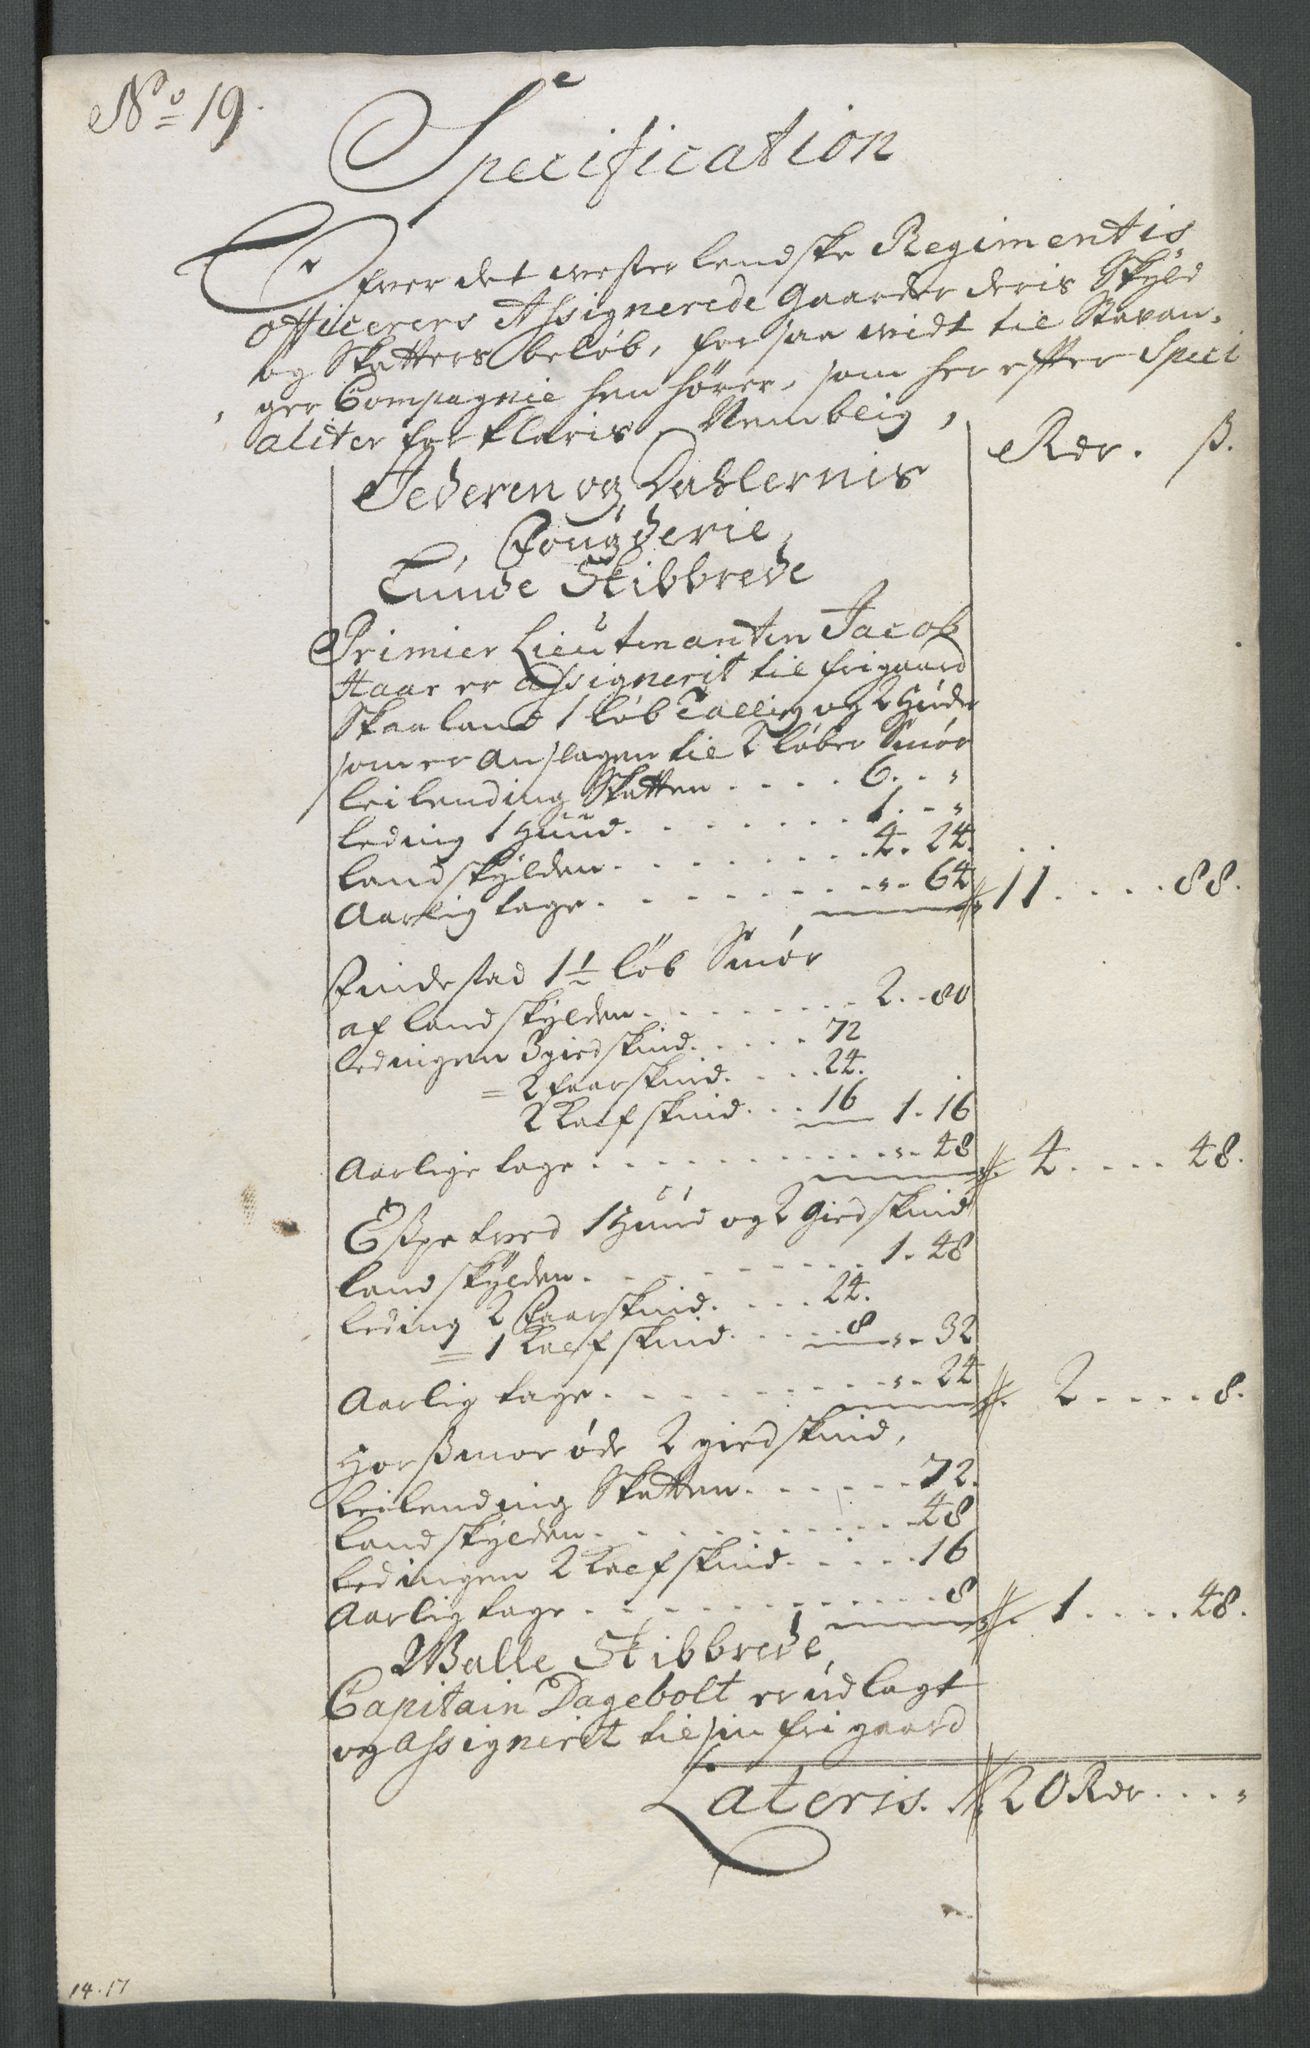 No 19.
Specification
Ofver det westerlendske Regimentis
officerers Assignerede gaarder deris Skÿld
og Skatters beløb, forsaa widt til Stavan-
ger Compagnie henhører, som her effter Speci
aliter forklaris, Nemblig,
Rdr. ß.
Jederen og Dahlernis
Fougderie,
Lunde Skibbrede
Primier Lieutenanten Jacob
Haar er assignerit til frigaard
Skaaland 1 løb Tallig og 2 huder
som er anslagen til 2 løber Smør
leilending Skatten . . . . 6. - "
leding 1 huud. . . . . . . . 1. - "
landskÿlden . . . . . . . . 4. 24.
Aarlig tage . . . . . . . . " - 64 // 11 . . . . 88.
Eindestad 1 1/2 løb Smør
af landskylden . . . . . . . 2. - 80
ledingen 3 giedskind. . . . . 72
= 2 faarskind. . . . 24.
2 kalfskind. . . 16 1. 16
Aarlige tage . . . . . . . . . " - 48 // 4 . . . . 48.
Eßpetved 1 huud og 2 giedskind
landskÿlden. . . . . . . . . 1. 48
leding 2 Faarskind. . . . 24.
= 1 kalfskind. . . . . 8 " - 32
Aarlig tage . . . . . . . . . " - 24 // 2 . . . . . 8.
Horßmor øde 2 giedskind,
leilending Skatten. . . . . . 72.
landskÿlden. . . . . . . . . . 48
ledingen 2 kalfskind. . . . . 16
Aarlig tage . . . . . . . . . . . 8 // 1 . . . . 48.
Walle Skibbrede,
Capitain Dagebolt er udlagt
og assignerit til sin frigaard
Lateris. // 20 Rdr. . . . "
14.17